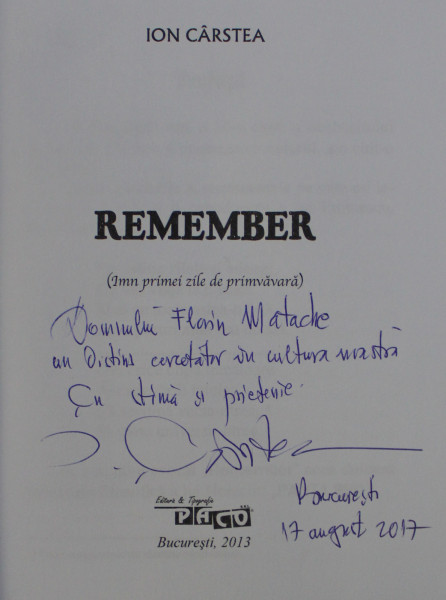 ION CÂRSTEA
REMEMBER
(Imn primei zile de primvăvară)
Domnului Florin Matache
un distins cercetător în cultura noastră
Cu stimă și prietenie.
Editura & Tipografia
PACO
București, 2013
București
17 august 2017